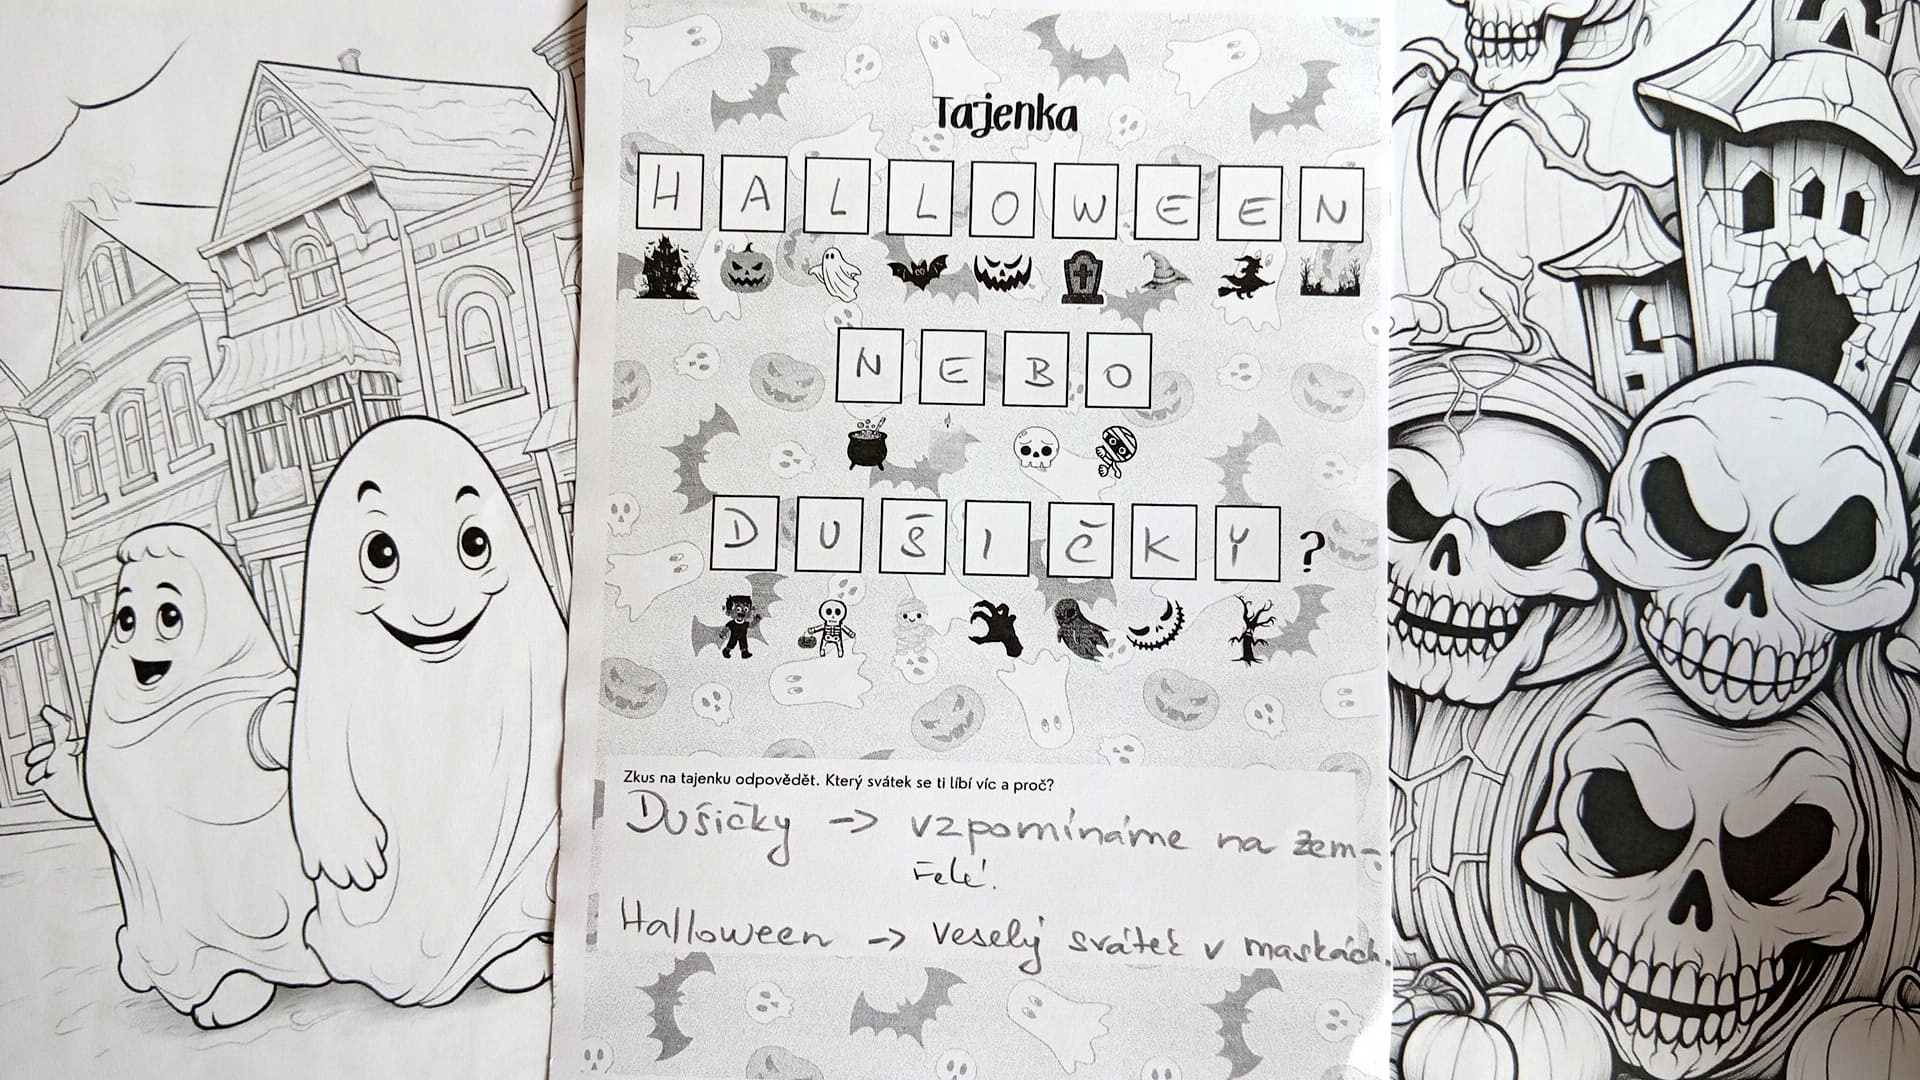 Tajenka
HALLOWEEN
NEBO
DUŠIČKY?
Zkus na tajenku odpovědět. Který svátek se ti líbí víc a proč?
Dušičky -> vzpomínáme na zem-
řelé.
Halloween -> veselý svátek v maskách.